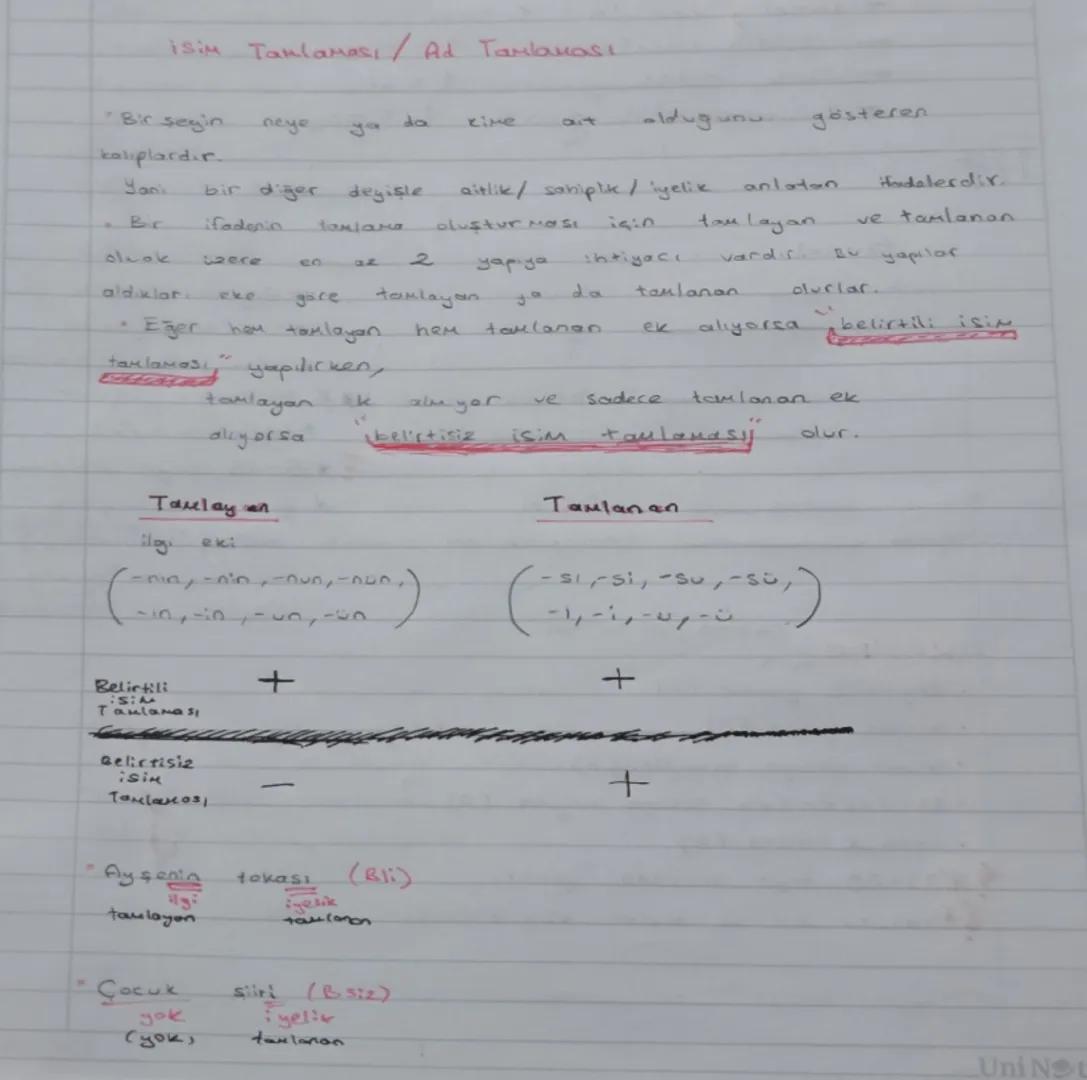 isim Tamlaması / Ad Tamlaması
" Bir şeyin neye ya da kime ait olduğunu gösteren
kalıplardır.
Yani bir diğer deyişle aitlik/ sahiplik / iyelik anlatan ifadelerdir.
• Bir ifadenin tamlama oluşturması için tamlayan ve tamlanan
olmak üzere en az 2 yapıya ihtiyacı vardır. Bu yapılar
aldıkları eke göre tamlayan ya da tamlanan olurlar.
• Eğer hem tamlayan hem tamlanan ek alıyorsa "belirtili isim
tamlaması" yapılırken,
tamlayan ek almıyor ve sadece tamlanan ek
alıyorsa "belirtisiz isim tamlaması" olur.
Tamlayan Tamlanan
ilgi eki
(-nın, -nin, -nun, -nün, (-sı, -si, -su, -sü,
-ın, -in, -un, -ün) -ı, -i, -u, -ü)
Belirtili + +
isim
Tamlaması
Belirtisiz
isim - +
Tamlaması
" Ayşenin tokası (Bli)
ilgi iyelik
tamlayan tamlanan
" Çocuk şiiri (Bsiz)
yok iyelik
(yok) tamlanan
UniNot